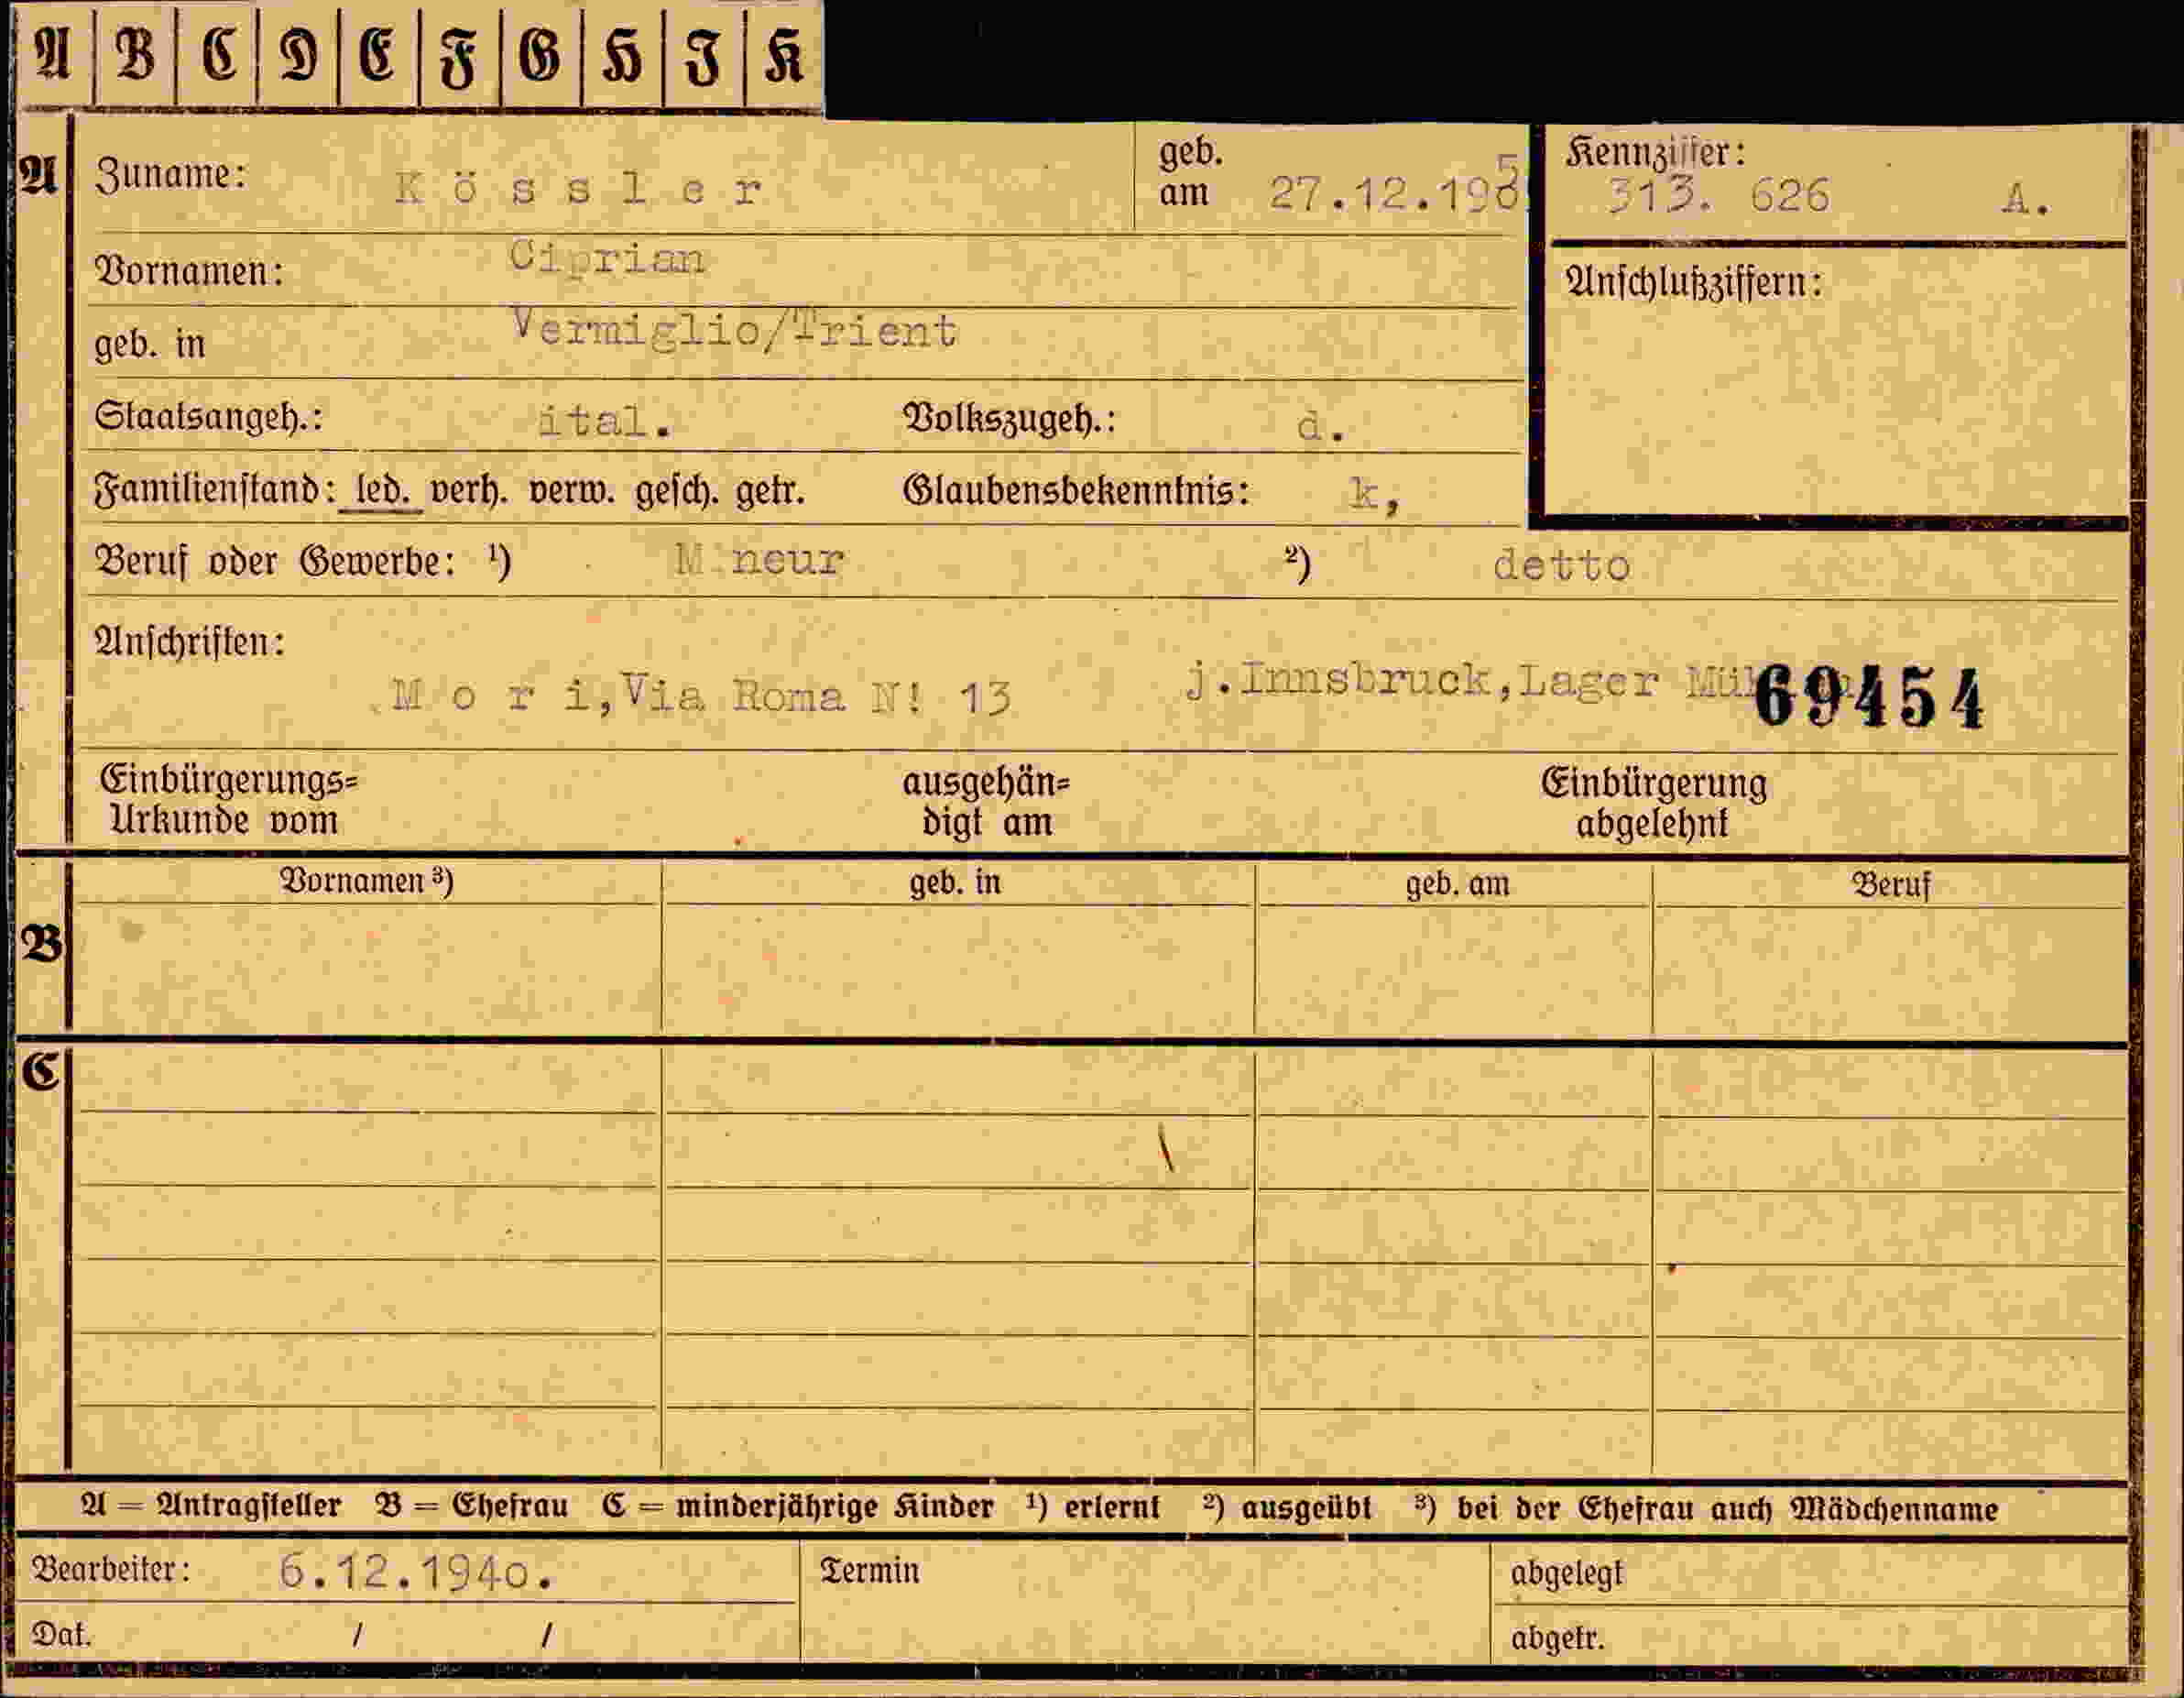 A B C D E F G H I K
A Zuname: Kössler geb. am 27.12.190 Kennziffer: 313. 626 A.
Vornamen: Ciprian Anschlußziffern:
geb. in Vermiglio/Trient
Staatsangeh.: ital. Volkszugeh.: d.
Familienstand: led. verh. verw. gesch. getr. Glaubensbekenntnis: k,
Beruf oder Gewerbe: ¹) M neur ²) detto
Anschriften:
Mori,Via Roma N! 13 j.Innsbruck,Lager 69454
Einbürgerungs= ausgehän= Einbürgerung
Urkunde vom digt am abgelehnt
Vornamen ³) geb. in geb. am Beruf
B
C
A = Antragsteller B = Ehefrau C = minderjährige Kinder ¹) erlernt ²) ausgeübt ³) bei der Ehefrau auch Mädchenname
Bearbeiter: 6.12.194o. Termin abgelegt
Dat. / / abgetr.